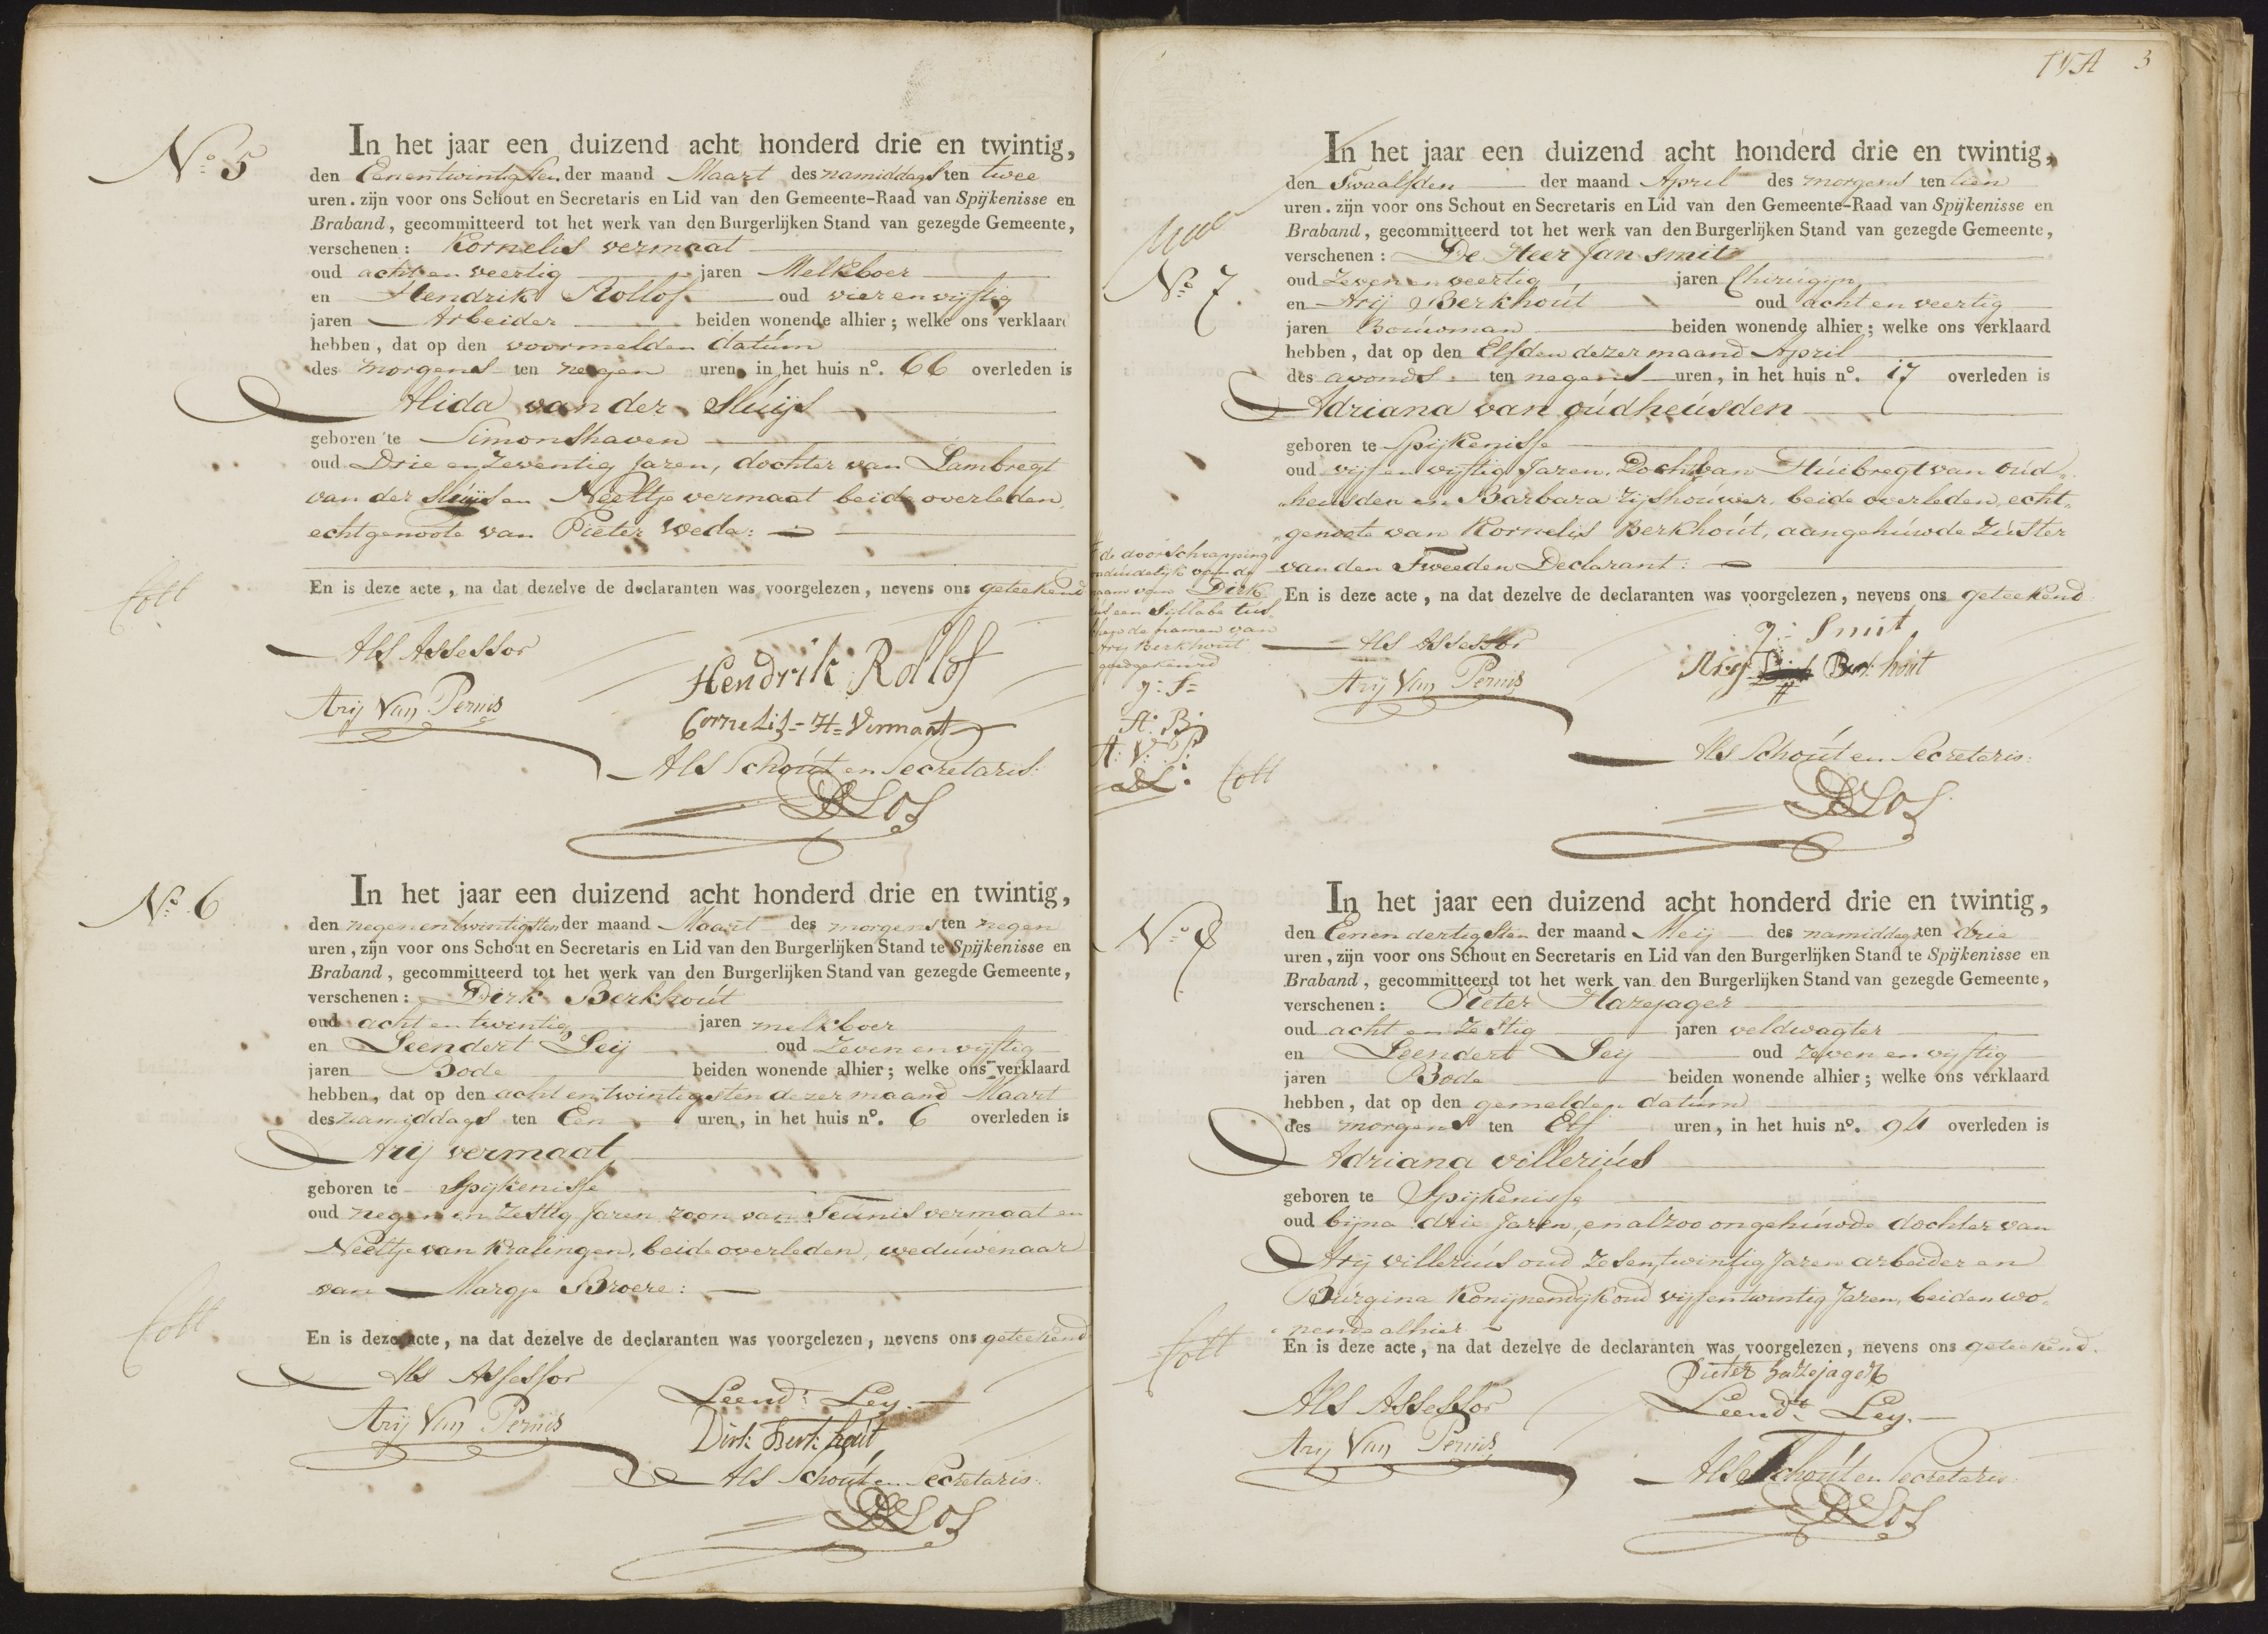 No 5
In het jaar een duizend acht honderd drie en twintig,
den Eenentwintigsten der maand Maart des namiddags ten twee
uren. zijn voor ons Schout en Secretaris en Lid van den Gemeente-Raad van Spijkenisse en
Braband, gecommitteerd tot het werk van den Burgerlijken Stand van gezegde Gemeente,
verschenen: Kornelis vermaat
oud acht en veertig jaren Melkboer
en Hendrik Rollof oud vier en vijftig
jaren Arbeider beiden wonende alhier; welke ons verklaard
hebben, dat op den voormelden datúm
des morgens ten negen uren, in het huis no. 66 overleden is
Alida van der Sluijs
geboren te Simonshaven
oud Drie en Zeventig Jaren, dochter van Lambregt
van der Sluijs en Neeltje vermaat beide overleden,
echtgenoote van Pieter Weda:
En is deze acte, na dat dezelve de declaranten was voorgelezen, nevens ons geteekend
Coll
Als Assessor
Hendrik Rollof
Arij Van Pernis
Cornelis = H = Vermaat
Als Schoút en Secretaris:
No 6
In het jaar een duizend acht honderd drie en twintig,
den negenentwintigsten der maand Maart des morgens ten negen
uren, zijn voor ons Schout en Secretaris en Lid van den Burgerlijken Stand te Spijkenisse en
Braband, gecommitteerd tot het werk van den Burgerlijken Stand van gezegde Gemeente,
verschenen: Dirk Berkhoút
oud acht en twintig jaren melkboer
en Leendert Leij oud Zeven en vijftig
jaren Bode beiden wonende alhier; welke ons verklaard
hebben, dat op den acht en twintigsten dezer maand Maart
des namiddags ten Een uren, in het huis no. 6 overleden is
Arij vermaat
geboren te Spijkenisse
oud negen en Zestig Jaren, zoon van Teúnis vermaat en
Neeltje van Kralingen, beide overleden, wedúwenaar
van Margje Broere:
En is deze acte, na dat dezelve de declaranten was voorgelezen, nevens ons geteekend
Coll
Als Assessor
Leend: Ley.
Arij Van Pernis
Dirk Berkhout
Als Schoút en Secretaris:
3
No 7
In het jaar een duizend acht honderd drie en twintig,
den Twaalfden der maand April des morgens ten tien
uren. zijn voor ons Schout en Secretaris en Lid van den Gemeente-Raad van Spijkenisse en
Braband, gecommitteerd tot het werk van den Burgerlijken Stand van gezegde Gemeente,
verschenen: De Heer Jan Smit
oud Zeven en veertig jaren Chirúgijn
en Arij Berkhoút oud acht en veertig
jaren Boúwman beiden wonende alhier; welke ons verklaard
hebben, dat op den Elfden dezer maand April
des avonds ten negen uren, in het huis no. 17 overleden is
Adriana van oúdheúsden
geboren te Spijkenisse
oud vijf en vijftig Jaren. Docht. van Húibregt van oúd„
„heúsden en Barbara Zijshoúwer, beide overleden, echt„
„genoote van Kornelis Berkhoút, aangehúwde Zúster
van den Tweeden Declarant:
En is deze acte, na dat dezelve de declaranten was voorgelezen, nevens ons geteekend
de doorschrapping
naam van Dirk
een Sillabe tús„
de namen van
Arij Berkhout
goedgekeurd
J: S=
A: B:
A: V: P:
Coll
Als Assessor
J: Smit
Arij Van Pernis
Arij Berkhout
Als Schoút en Secretaris:
No 8
In het jaar een duizend acht honderd drie en twintig,
den Eenendertigsten der maand Meij des namiddags ten drie
uren, zijn voor ons Schout en Secretaris en Lid van den Burgerlijken Stand te Spijkenisse en
Braband, gecommitteerd tot het werk van den Burgerlijken Stand van gezegde Gemeente,
verschenen: Pieter Hazejager
oud acht en Zestig jaren veldwagter
en Leendert Leij oud zeven en vijftig
jaren Bode beiden wonende alhier; welke ons verklaard
hebben, dat op den gemelden datúm
des morgens ten Elf uren, in het huis no. 94 overleden is
Adriana villeriús
geboren te Spijkenisse
oud bijna drie Jaren, en alzoo ongehúwde dochter van
Arij villeriús oud Zesentwintig Jaren arbeider en
Búrgina Konijnendijk oud vijfentwintig Jaren, beiden wo„
„nende alhier
En is deze acte, na dat dezelve de declaranten was voorgelezen, nevens ons geteekend.
Coll
Pieter hazejager
Als Assessor
Leendt Ley.
Arij Van Pernis
Als Schoút en Secretaris: